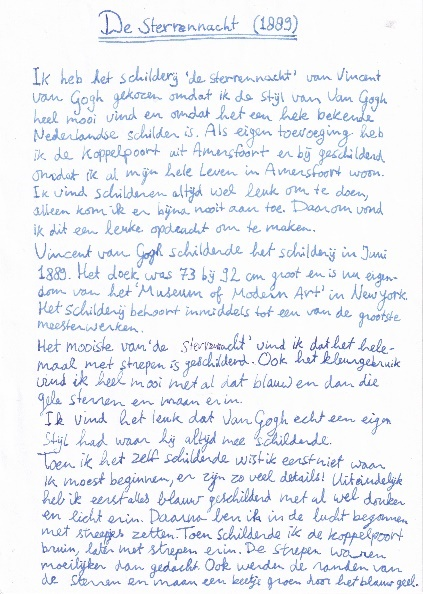 De Sterrennacht (1889)
Ik heb het schilderij 'de sterrennacht' van Vincent
van Gogh gekozen omdat ik de stijl van Van Gogh
heel mooi vind en omdat het een hele bekende
Nederlandse schilder is. Als eigen toevoeging heb
ik de Koppelpoort uit Amersfoort er bij geschilderd
omdat ik al mijn hele leven in Amersfoort woon.
Ik vind schilderen altijd wel leuk om te doen,
alleen kom ik er bijna nooit aan toe. Daarom vond
ik dit een leuke opdracht om te maken.
Vincent van Gogh schilderde het schilderij in Juni
1889. Het doek was 73 bij 92 cm groot en is nu eigen-
dom van het 'Museum of Modern Art' in New York.
Het schilderij behoort inmiddels tot een van de grootste
meesterwerken.
Het mooiste van 'de sterrennacht' vind ik dat het hele-
maal met strepen is geschilderd. Ook het kleurgebruik
vind ik heel mooi met al dat blauw en dan die
gele sterren en maan erin.
Ik vind het leuk dat Van Gogh echt een eigen
stijl had waar hij altijd mee schilderde.
Toen ik het zelf schilderde wist ik eerst niet waar
ik moest beginnen, er zijn zo veel details! Uiteindelijk
heb ik eerst alles blauw geschilderd met al wel donker
en licht erin. Daarna ben ik in de lucht begonnen
met streepjes zetten. Toen schilderde ik de Koppelpoort
bruin, later met strepen erin. De strepen waren
moeilijker dan gedacht. Ook werden de randen van
de sterren en maan een beetje groen door het blauw geel.